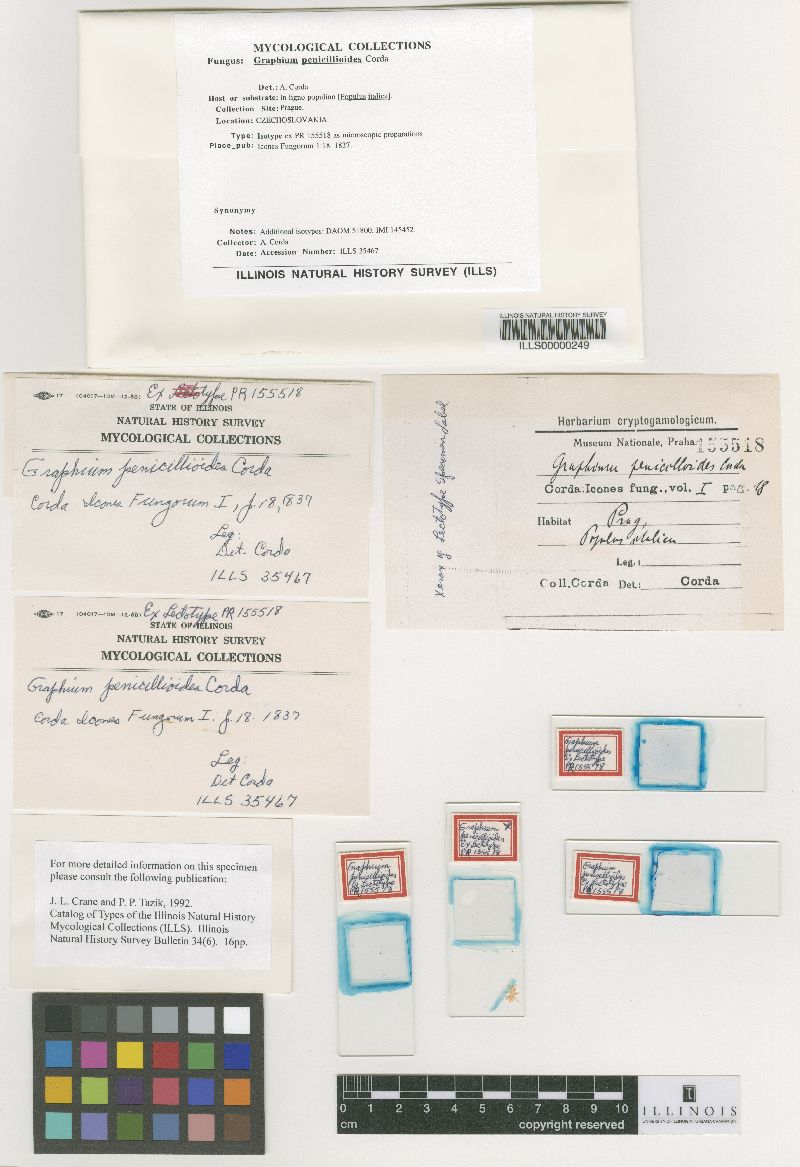 MYCOLOGICAL COLLECTIONS
Fungus: Graphium penicillioides Corda
Det.: A. Corda
Host or substrate: In ligno populino [Populus italica].
Collection Site: Prague.
Location: CZECHOSLOVAKIA
Type: Isotype ex PR 155518 as microscopic preparations
Place_pub: Icones Fungorum 1:18. 1837.
Synonymy
Notes: Additional isotypes: DAOM 51800, IMI 145452.
Collector: A. Corda
Date: Accession Number: ILLS 35467
ILLINOIS NATURAL HISTORY SURVEY (ILLS)
ILLINOIS NATURAL HISTORY SURVEY
ILLS00000249
17 (04017—10M—12-80) Ex type PR 155518
STATE OF ILLINOIS
NATURAL HISTORY SURVEY
MYCOLOGICAL COLLECTIONS
Graphium penicillioides Corda
Corda Icones Fungorum I, p. 18, 1837
Leg:
Det. Corda
ILLS 35467
17 (04017—10M—12-80) Ex Lectotype PR 155518
STATE OF ILLINOIS
NATURAL HISTORY SURVEY
MYCOLOGICAL COLLECTIONS
Graphium penicillioides Corda
Corda Icones Fungorum I. p. 18. 1837
Leg:
Det Corda
ILLS 35467
Xerox of Lectotype Specimen Label
Herbarium cryptogamologicum.
Museum Nationale, Praha. 155518
Graphium penicillioides Corda
Corda.Icones fung.,vol. I pag. 18
Habitat Prag,
Populus italica
Leg.:
Coll.Corda Det: Corda
For more detailed information on this specimen
please consult the following publication:
J. L. Crane and P. P. Tazik, 1992.
Catalog of Types of the Illinois Natural History
Mycological Collections (ILLS). Illinois
Natural History Survey Bulletin 34(6). 16pp.
Graphium
penicillioides
Ex Lectotype
PR 155518
Graphium
penicillioides
Ex Lectotype
PR 155518
Graphium
penicillioides
Ex Lectotype
PR 155518
Graphium
penicillioides
Ex Lectotype
PR 155518
0 1 2 3 4 5 6 7 8 9 10
cm copyright reserved
I
ILLINOIS
UNIVERSITY OF ILLINOIS AT URBANA-CHAMPAIGN